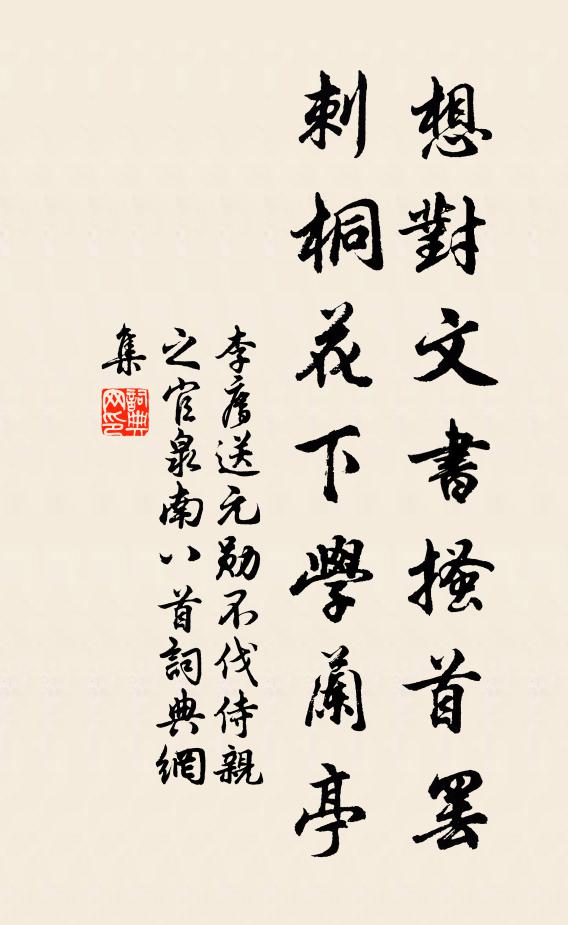 想對文書搔首罷
刺桐花下學蘭亭
李廌送元勋不伐侍親
之官泉南八首詞典網
集
詞典
网印